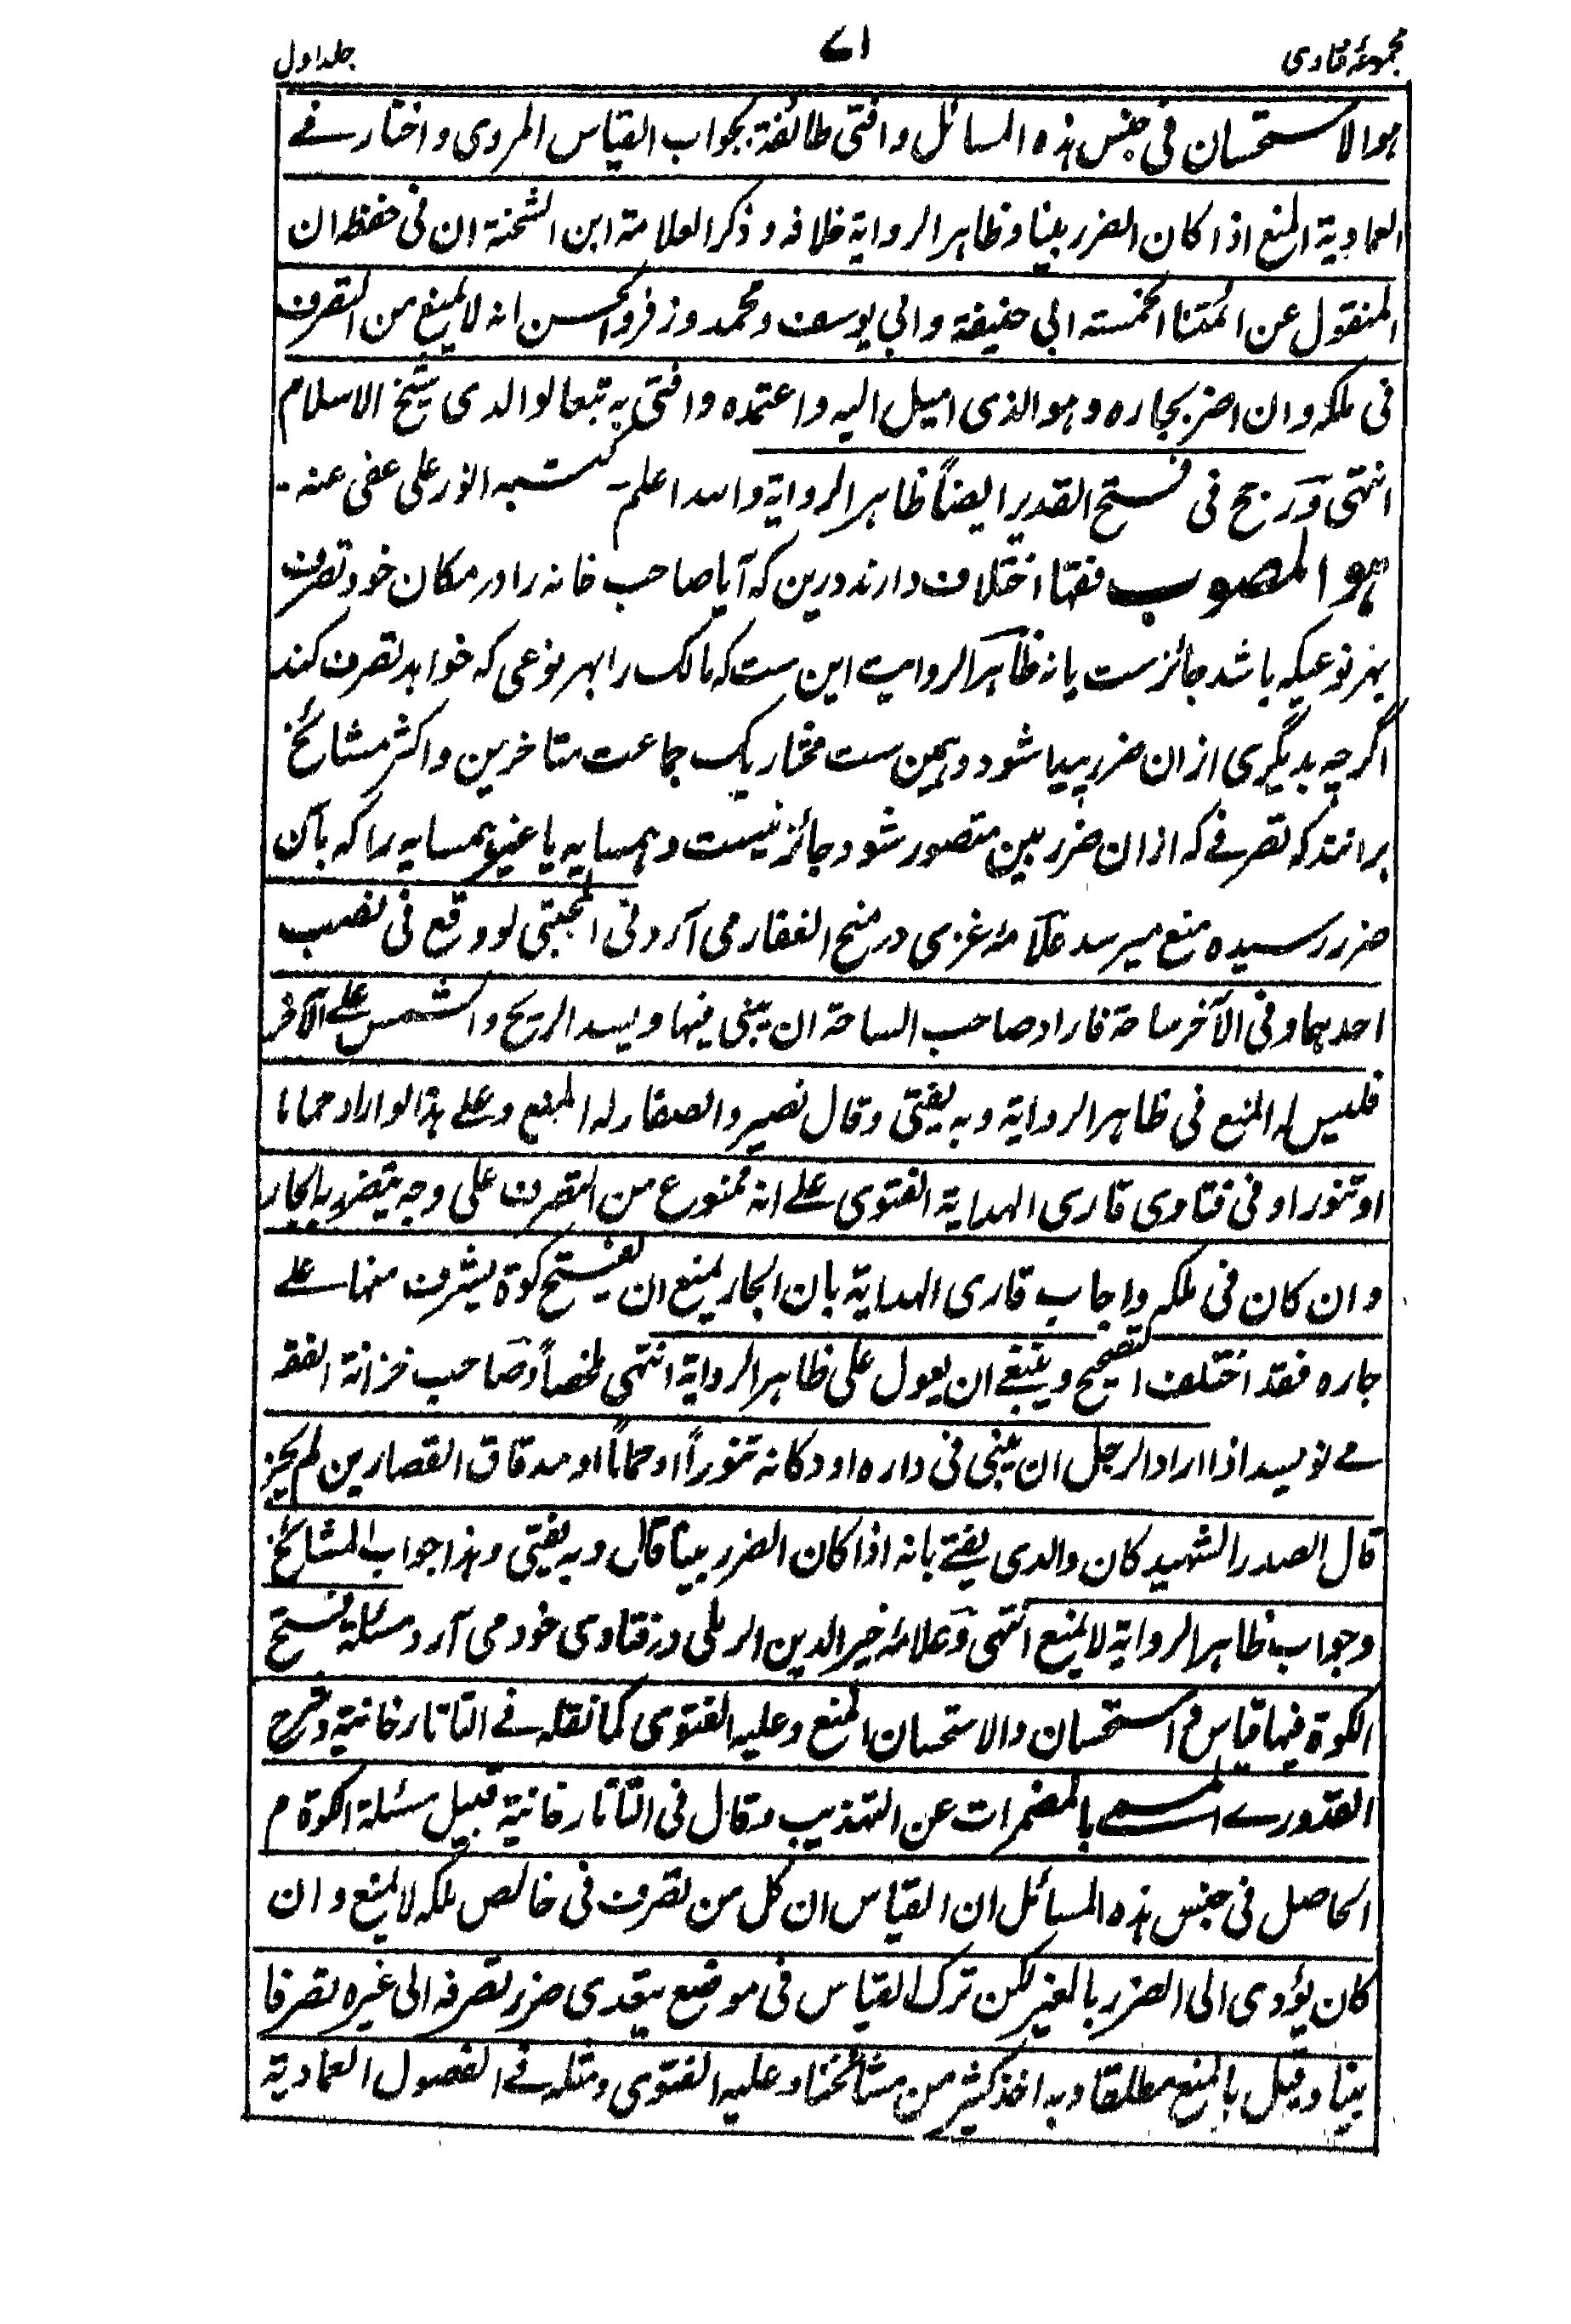 مجموعۂ فتاوی
۷۱
جلد اول
ہو الاستحسان فی جنس ہذہ المسائل وافتی طائفۃ بجواب القیاس المروی واختار فے
العمادیۃ المنع اذا کان الضرر بینا وظاہر الروایۃ خلافہ وذکر العلامۃ ابن الشحنۃ ان فی حفظہ ان
المنقول عن ائمتنا الخمسۃ ابی حنیفۃ وابی یوسف ومحمد وزفر والحسن انہ لا یمنع من التصرف
فی ملکہ وان اضر بجارہ وہو الذی امیل الیہ واعتمدہ وافتی بہ تبعا لوالدی شیخ الاسلام
انتہی ورجح فی فتح القدیر ایضاً ظاہر الروایۃ واللہ اعلم۔ کتبہ انور علی عفی عنہ۔
ہو المصوب فقہا اختلاف دارند درین کہ آیا صاحب خانہ را در مکان خود تصرف
بہر نوعیکہ باشد جائزست یا نہ ظاہر الروایت این ست کہ مالک را بہر نوعی کہ خواہد تصرف کند
اگرچہ بدیگری ازان ضرر پیدا شود وہمین ست مختار یک جماعت متاخرین واکثر مشائخ
برانند کہ تصرفے کہ ازان ضرر بین متصور شود جائز نیست وہمسایہ یا غیر ہمسایہ را کہ بآن
ضرر رسیدہ منع میرسد علامۂ غزی در منح الغفار می آرد فی المجتبی لو وقع فی نصیب
احدہما وفی الآخر ساحۃ فاراد صاحب الساحۃ ان یبنی فیہا ویسد الریح والشمس علے الآخر
فلیس لہ المنع فی ظاہر الروایۃ وبہ یفتی وقال نصیر والصفار لہ المنع وعلے ہذا لو اراد حماما
او تنورا وفی فتاوی قاری الہدایۃ الفتوی علے انہ ممنوع من التصرف علی وجہ یتضرر بہ الجار
وان کان فی ملکہ واجاب قاری الہدایۃ بان الجار یمنع ان یفتح کوۃ یشرف منہا علے
جارہ فقد اختلف التصحیح وینبغے ان یعول علی ظاہر الروایۃ انتہی ملخصاً وصاحب خزانۃ الفقہ
مے نویسد اذا اراد الرجل ان یبنی فی دارہ او دکانہ تنوراً او حماماً او مدقاق القصارین لم یجز
قال الصدر الشہید کان والدی یفتے بانہ اذا کان الضرر بینا قال وبہ یفتی وہذا جواب المشائخ
وجواب ظاہر الروایۃ لا یمنع انتہی وعلامۂ خیر الدین الرملی در فتاوی خود می آرد مسئلۃ فتح
الکوۃ فیہا قیاس واستحسان والاستحسان المنع وعلیہ الفتوی کما نقلہ فے التاتارخانیۃ وشرح
القدورے المسمے بالمضمرات عن التہذیب وقال فی التاتارخانیۃ قبیل مسئلۃ الکوۃ م
الحاصل فی جنس ہذہ المسائل ان القیاس ان کل من تصرف فی خالص ملکہ لا یمنع وان
کان یؤدی الی الضرر بالغیر لکن ترک القیاس فی موضع یتعدی ضرر تصرفہ الی غیرہ تصرفا
بینا وقیل بالمنع مطلقا وبہ اخذ کثیر من مشائخنا وعلیہ الفتوی ومثلہ فے الفصول العمادیۃ